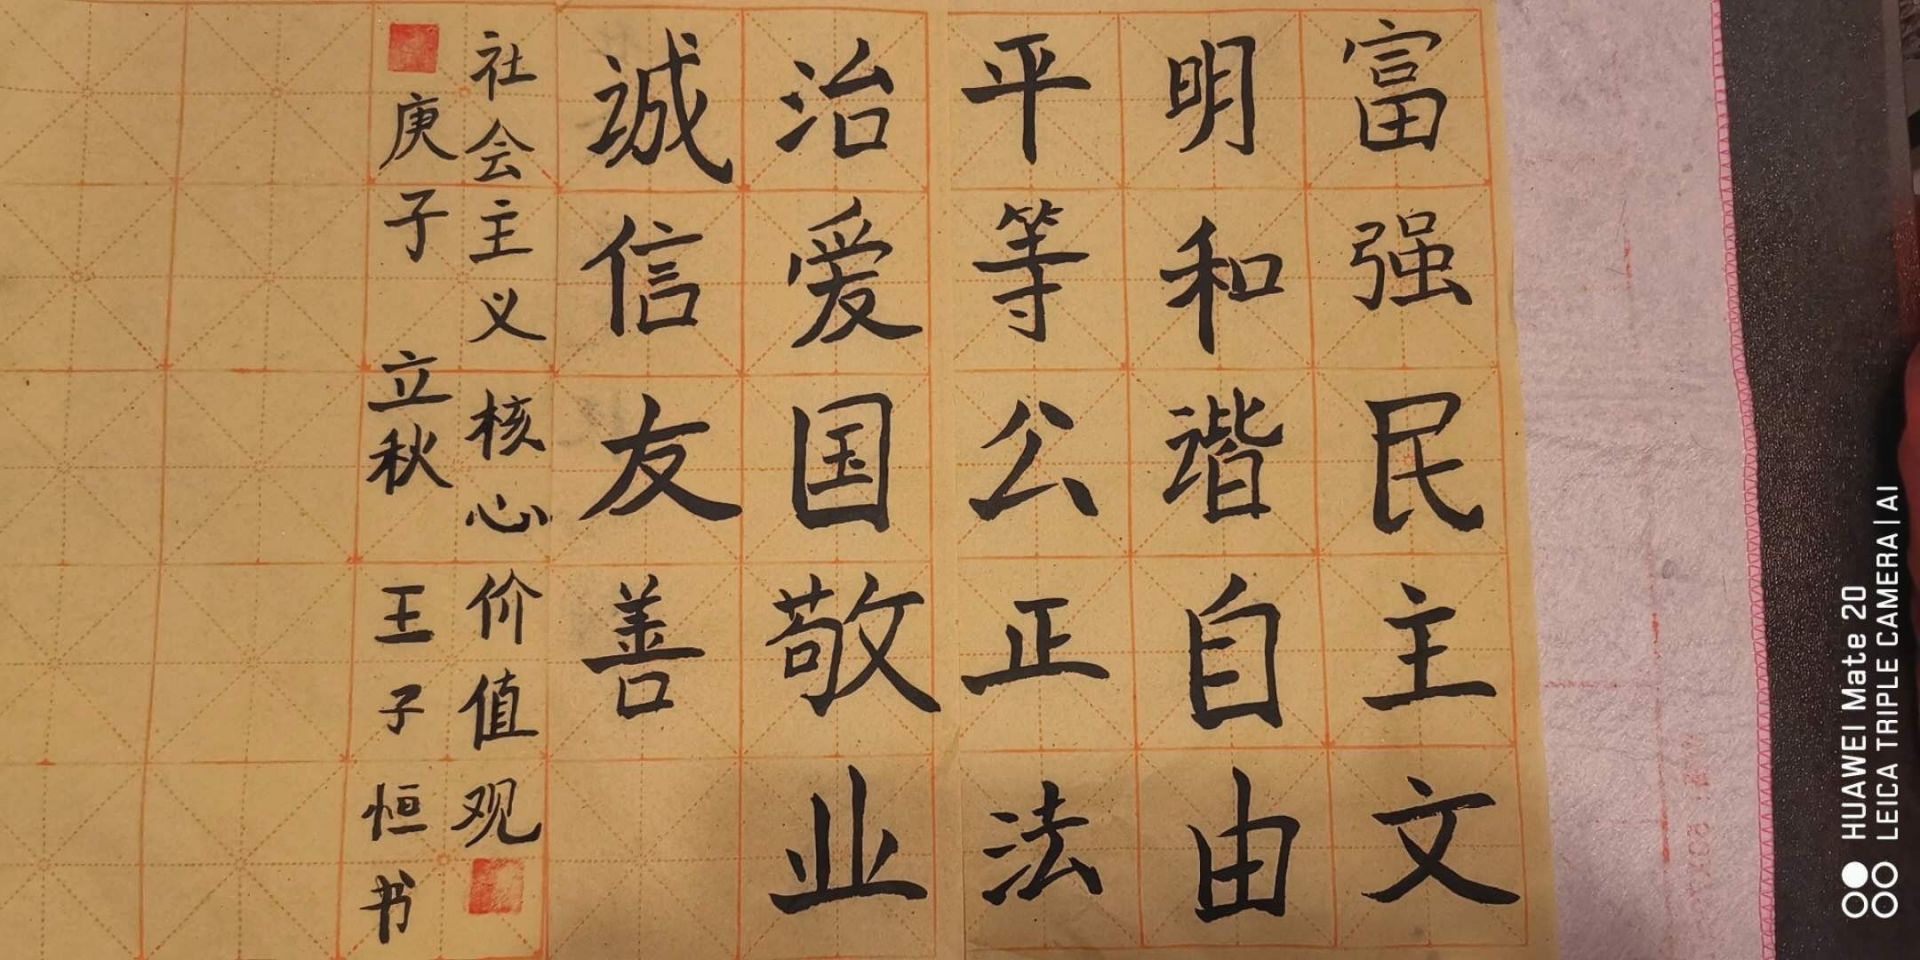 富强民主文
明和谐自由
平等公正法
治爱国敬业
诚信友善
社会主义核心价值观
庚子 立秋 王子恒书
HUAWEI Mate 20
LEICA TRIPLE CAMERA | AI